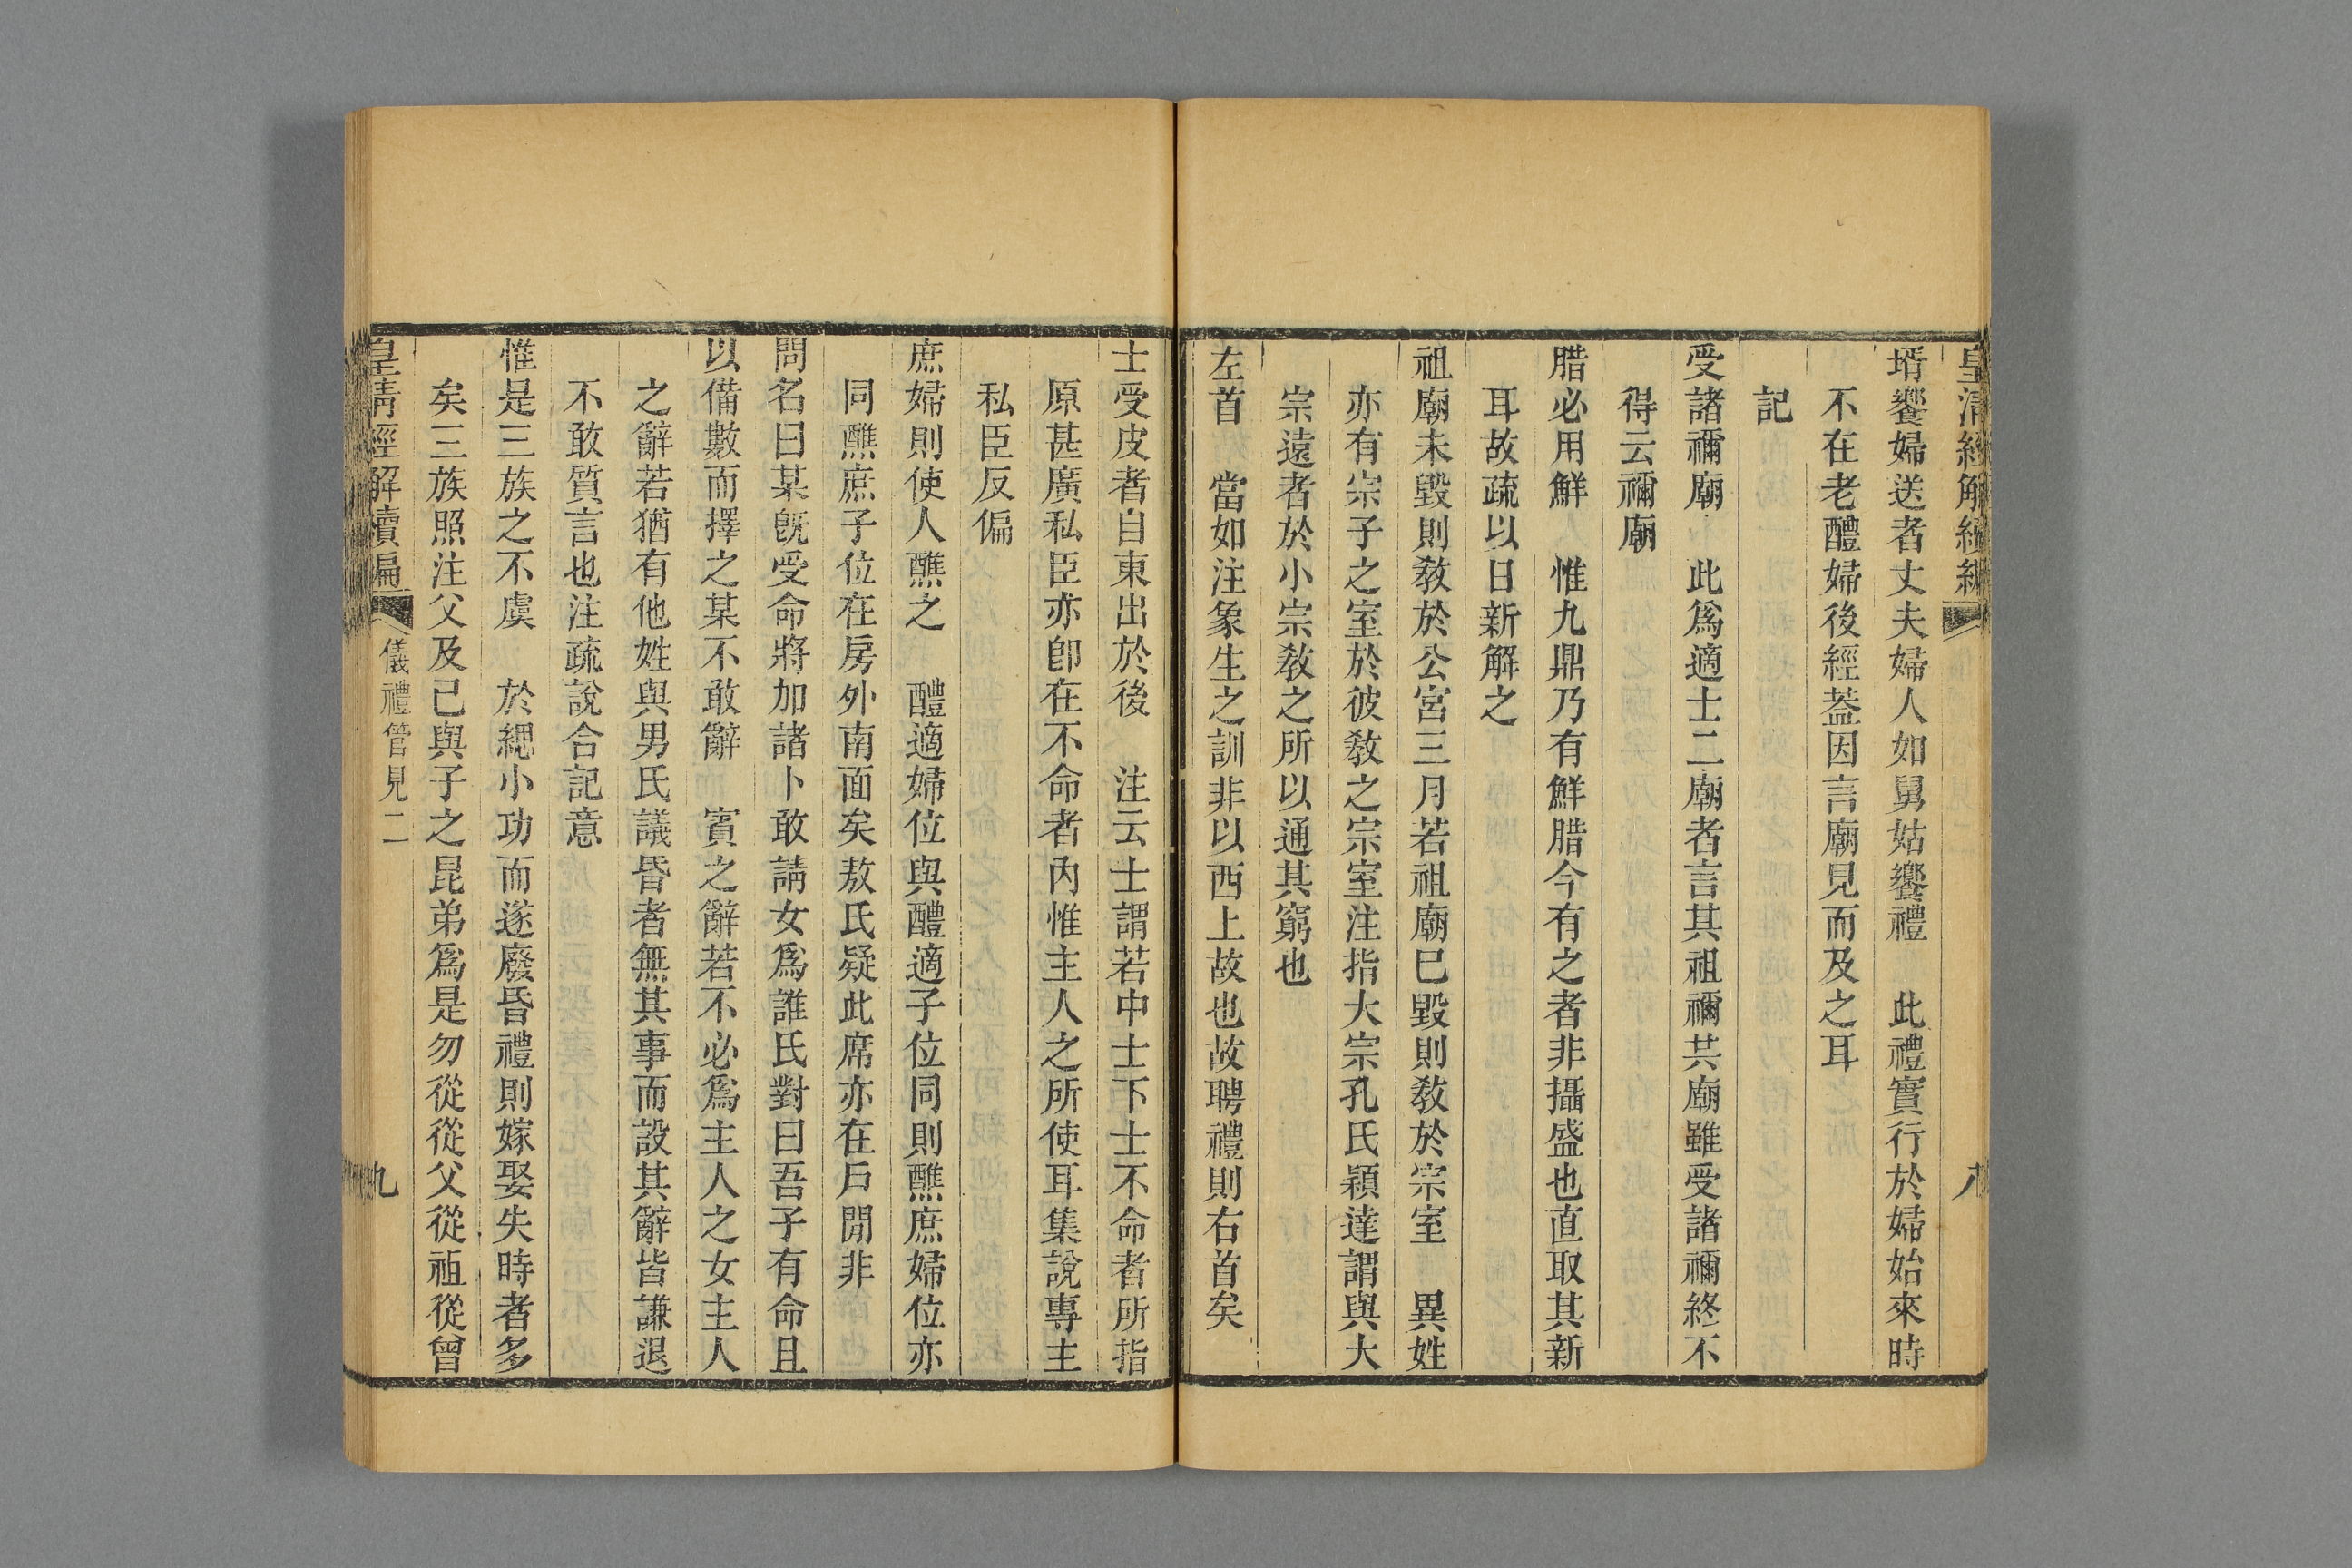 皇清經解續編
八
壻饗婦送者丈夫婦人如舅姑饗禮　此禮實行於婦始來時
不在老醴婦後經葢因言廟見而及之耳
記
受諸禰廟　此爲適士二廟者言其祖禰共廟雖受諸禰終不
得云禰廟
腊必用鮮　惟九鼎乃有鮮腊今有之者非攝盛也直取其新
耳故疏以日新解之
祖廟未毀則敎於公宮三月若祖廟巳毀則敎於宗室　異姓
亦有宗子之室於彼敎之宗室注指大宗孔氏穎達謂與大
宗遠者於小宗敎之所以通其窮也
左首　當如注象生之訓非以西上故也故聘禮則右首矣
士受皮者自東出於後　注云士謂若中士下士不命者所指
原甚廣私臣亦卽在不命者內惟主人之所使耳集說專主
私臣反偏
庶婦則使人醮之　醴適婦位與醴適子位同則醮庶婦位亦
同醮庶子位在房外南面矣敖氏疑此席亦在戶閒非
問名曰某旣受命將加諸卜敢請女爲誰氏對曰吾子有命且
以備數而擇之某不敢辭　賓之辭若不必爲主人之女主人
之辭若猶有他姓與男氏議昏者無其事而設其辭皆謙退
不敢質言也注疏說合記意
惟是三族之不虞　於緦小功而遂廢昏禮則嫁娶失時者多
矣三族照注父及己與子之昆弟爲是勿從從父從祖從曾
皇清經解續編
儀禮管見二
九